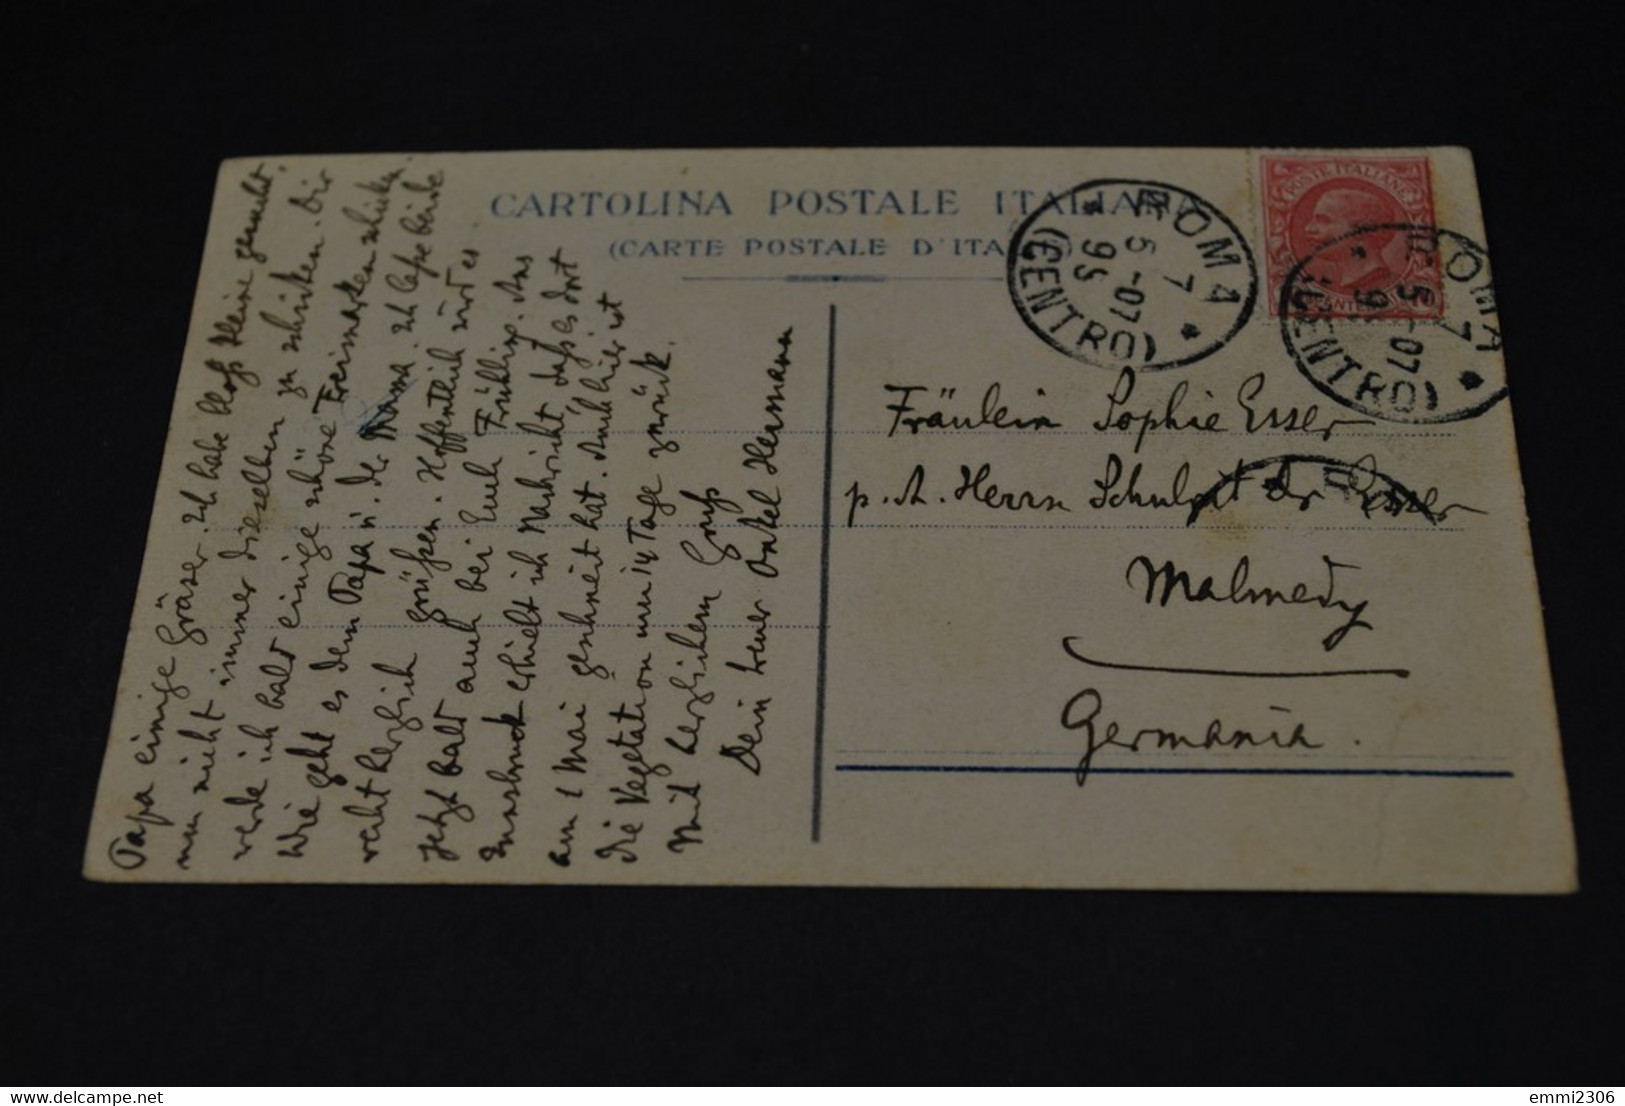 CARTOLINA POSTALE ITALIANA
(CARTE POSTALE D'ITALIE)
ROMA
7
5-07
9S
(CENTRO)
POSTE ITALIANE
ROMA
7
5-07
9S
(CENTRO)
Fräulein Sophie Esser
p. A. Herrn Schulrat Dr. Esser
Malmedy
Germania.
Papa einige Gräser. Ich habe bloß kleine gesucht,
um nicht immer dieselben zu schicken. Dir
werde ich bald einige schöne Freimarken schicken.
Wie geht es dem Papa u. der Mama. Ich lasse beide
recht herzlich grüßen. Hoffentlich wird es
jetzt bald auch bei Euch Frühling. Aus
Innsbruck erhielt ich Nachricht, daß es dort
am 1 Mai geschneit hat. Auch hier ist
die Vegetation um 14 Tage zurück.
Mit herzlichem Gruß
Dein treuer Onkel Hermann
emmi2306